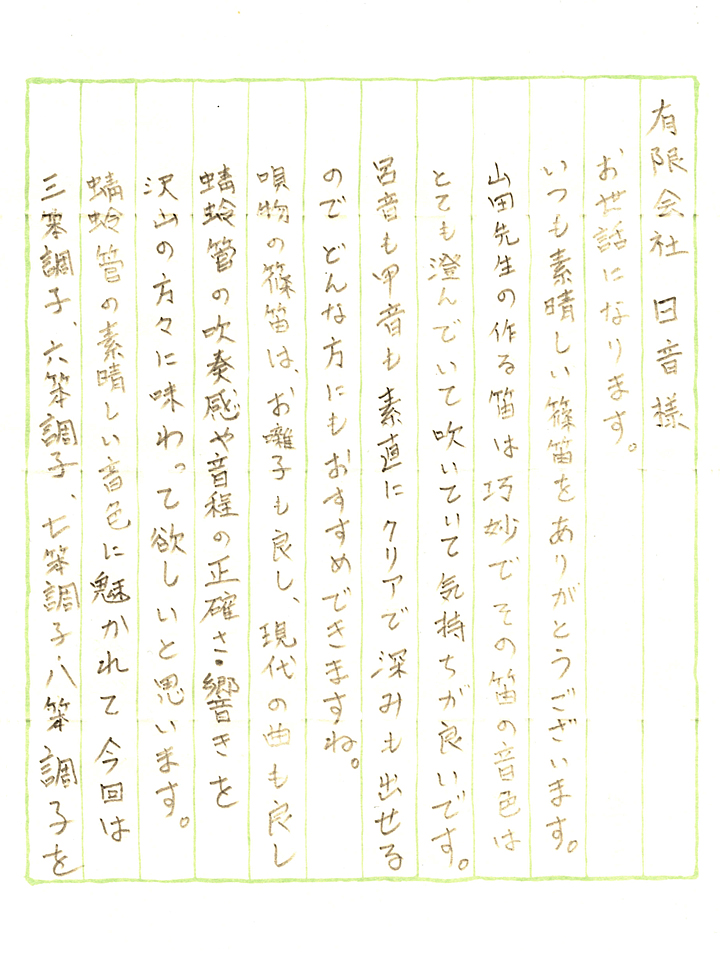 有限会社 日音様
お世話になります。
いつも素晴しい篠笛をありがとうございます。
山田先生の作る笛は巧妙でその笛の音色は
とても澄んでいて吹いていて気持ちが良いです。
呂音も甲音も素直にクリアで深みも出せる
のでどんな方にもおすすめできますね。
唄物の篠笛は、お囃子も良し、現代の曲も良し
蜻蛉管の吹奏感や音程の正確さ・響きを
沢山の方々に味わって欲しいと思います。
蜻蛉管の素晴しい音色に魅かれて今回は
三笨調子、六笨調子、七笨調子八笨調子を